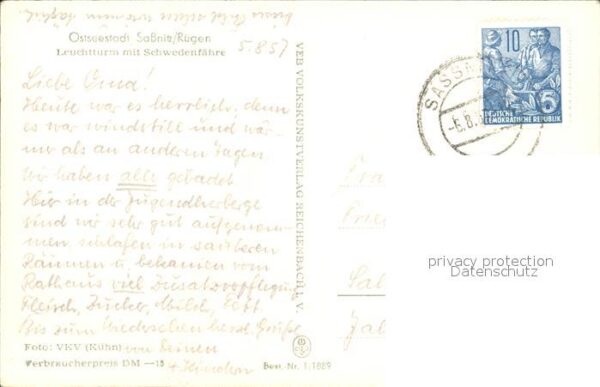 dieses Bild sehen wir immer täglich.
Ostseestadt Saßnitz/Rügen
Leuchtturm mit Schwedenfähre
5.8.57
Liebe Oma!
Heute war es herrlich, denn
es war windstill und wär-
mer als an anderen Tagen
Wir haben alle gebadet
Hier in der Jugendherberge
sind wir sehr gut aufgenom-
men schlafen in sauberen
Räumen u. bekamen vom
Rathaus viel Zusatzverpflegung
Fleisch, Zucker, Milch, Fett.
Bis zum Wiedersehen herzl. Grüße
von Deinen
+ Kindern
Foto: VKV (Kühn)
Verbraucherpreis DM —15
Best.-Nr. 1/1889
VEB VOLKSKUNSTVERLAG REICHENBACH I. V.
SASSN
-6.8.
10
5
DEUTSCHE
DEMOKRATISCHE REPUBLIK
privacy protection
Datenschutz